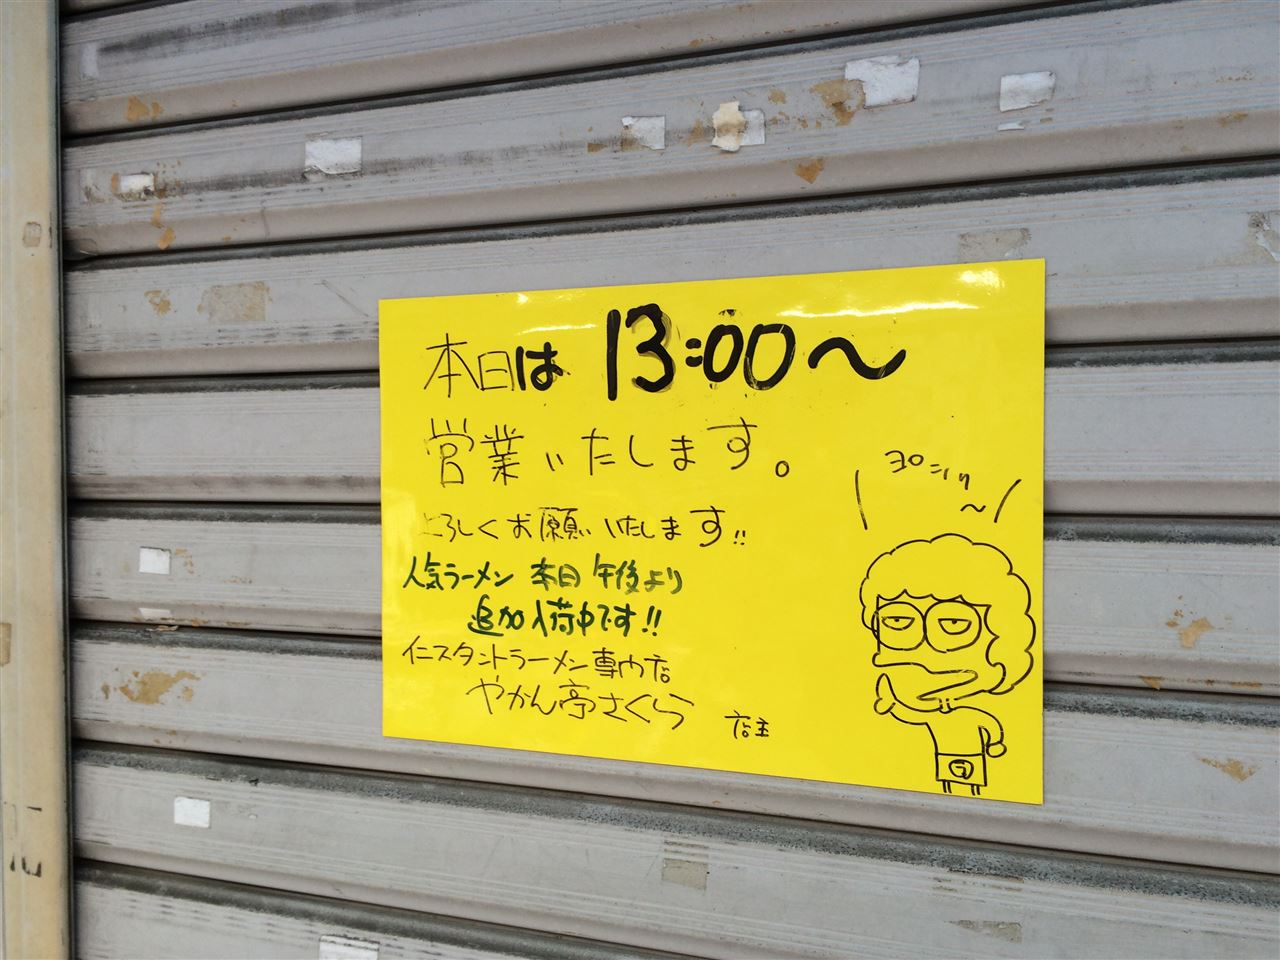 本日は 13:00〜
営業いたします。
よろしくお願いいたします!!
人気ラーメン 本日 午後より
追加入荷中です!!
インスタントラーメン専門店
やかん亭さくら 店主
ヨロコシク
〜
ラ